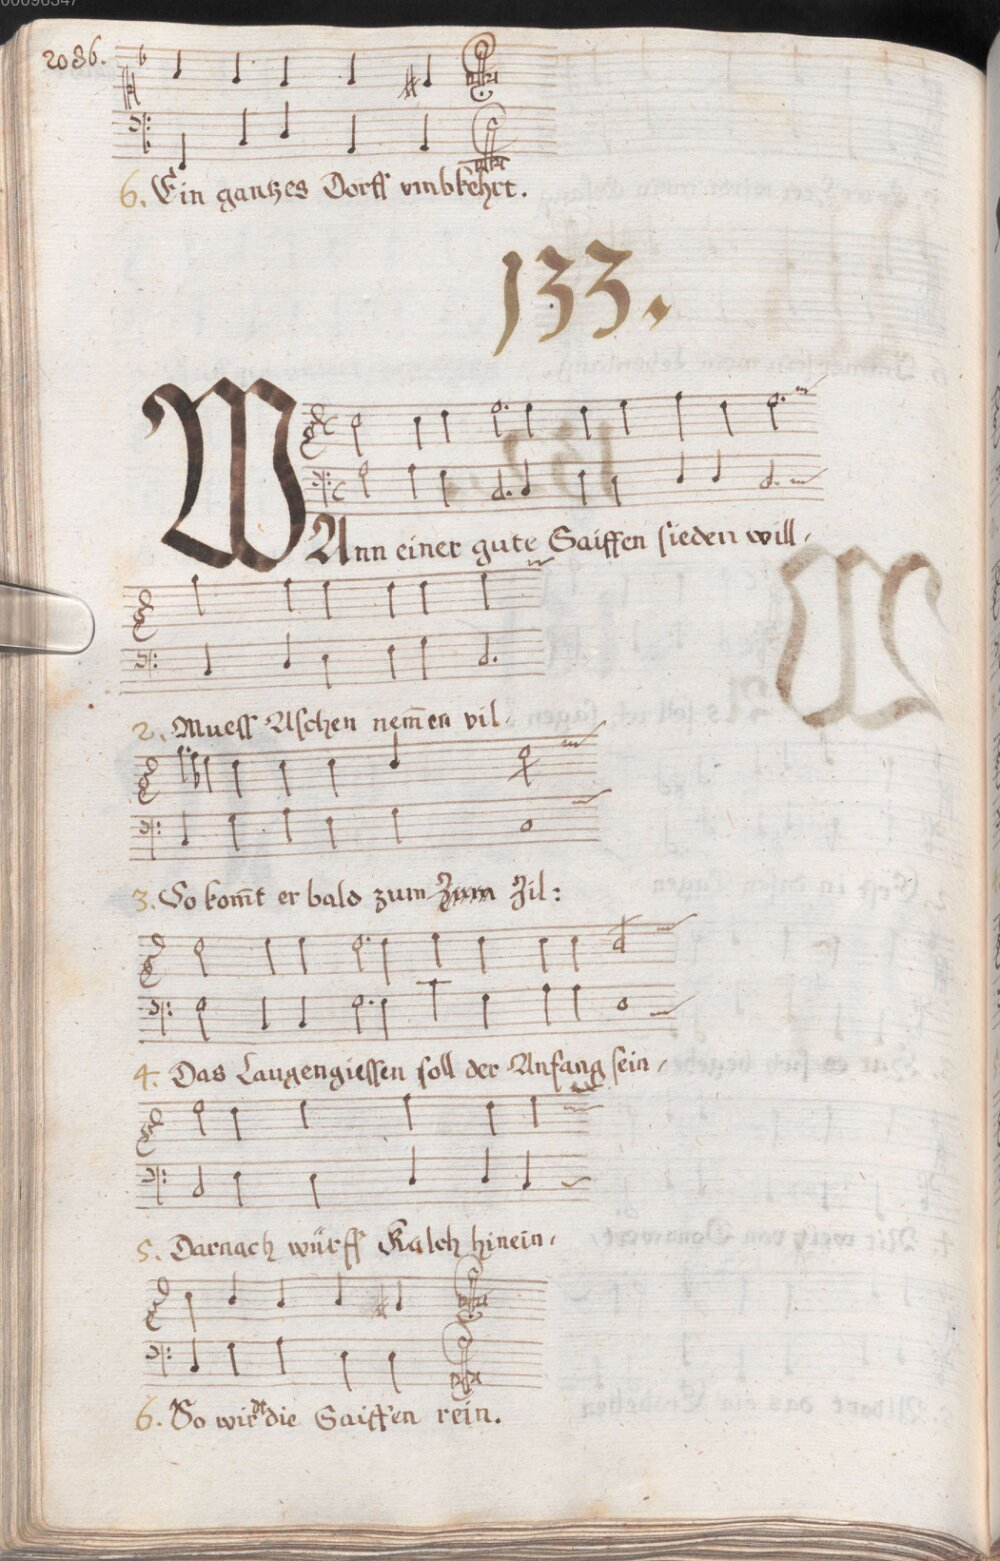 2086.
6. Ein gantzes Dorff vmbkehrt.
133.
WAnn einer gute Saiffen sieden will,
2. Muess Aschen nem̄en vil,
3. So kom̄t er bald zum Zil:
4. Das Laugengiessen soll der Anfang sein,
5. Darnach würff Kalch hinein,
6. So wirdt die Saiffen rein.